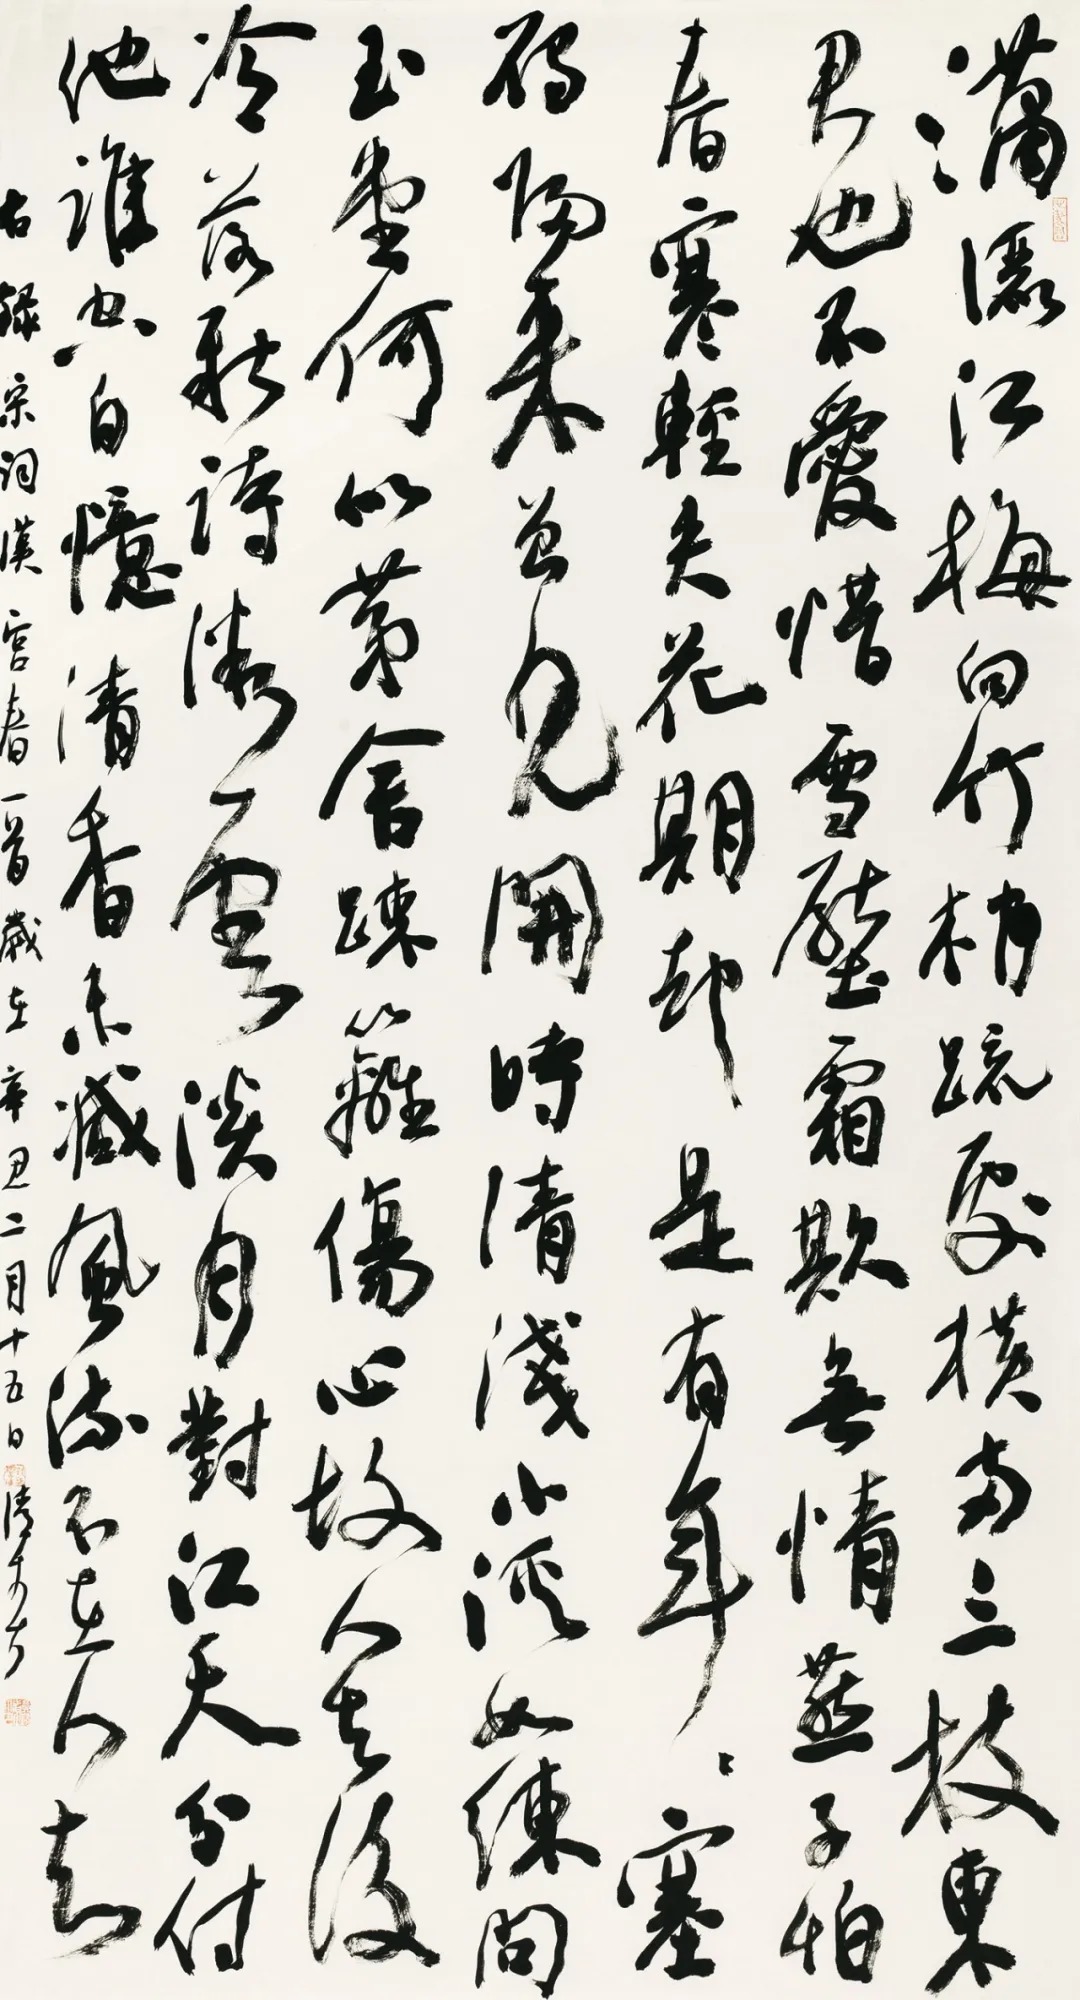 瀟灑江梅向竹梢疏處橫兩三枝東
君也不愛惜雪壓霜欺無情燕子怕
春寒輕失花期却是有年〻塞
鴈歸來曾見開時清淺小溪如練問
玉堂何似茅舍疎籬傷心故人去後
冷落新詩微雲淡月對江天分付
他誰空自憶清香未減風流不在人知
右録宋詞漢宮春一首歲在辛丑二月十五日